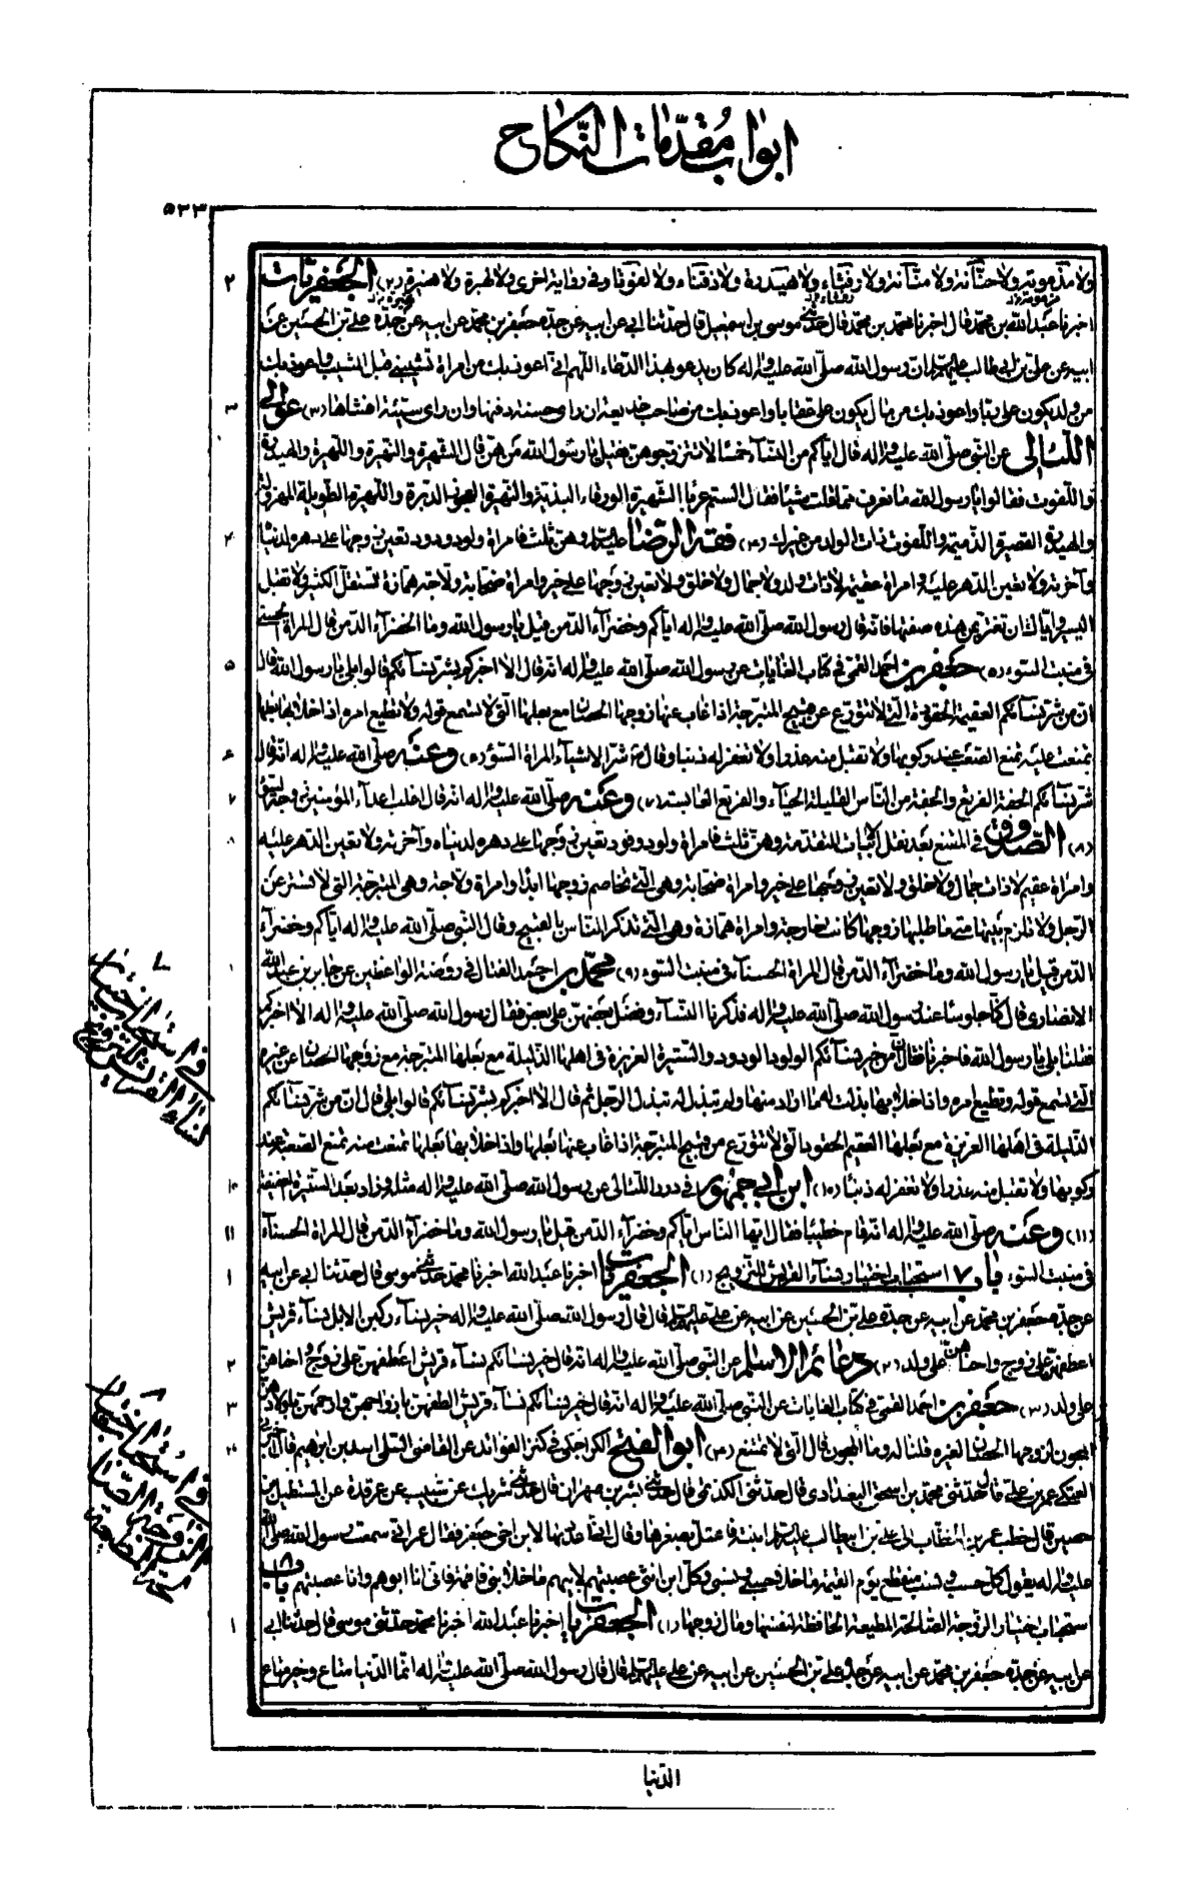 ابواب مقدّمات النّكاح
٥٣٣
ولا مذمومة ولا حنّانة ولا منّانة ولا رفثاء ولا هيدرة ولا ذقناء ولا لفوتا وفى رواية اخرى ولا لهبرة ولا هنبرة (٢) الجعفريّات
اخبرنا عبد الله بن محمّد قال اخبرنا محمد بن محمّد قال حدّثنى موسى بن اسمعيل قال حدّثنا ابى عن ابيه عن جدّه جعفر بن محمّد عن ابيه عن جدّه علىّ بن الحسين عن
ابيه عن علىّ بن ابى طالب عليهم السلام ان رسول الله صلّى الله عليه واله كان يدعو بهذا الدّعاء اللّهمّ انّى اعوذ بك من امراة تشيّبنى قبل المشيب واعوذ بك
من ولد يكون علىّ ربّا واعوذ بك من مال يكون علىّ عقابا واعوذ بك من صاحب خديعة ان راى حسنة دفنها وان راى سيّئة افشاها (٣) عوالى
اللّئالى عن النّبى صلّى الله عليه واله قال ايّاكم من النّساء خمسًا لا تتزوّجوهنّ فقيل يا رسول الله من هنّ قال الشّهبرة والنّهبرة واللّهبرة والهيدرة
واللّفوت فقالوا يا رسول الله ما نعرف ممّا قلت شيئا فقال الستم عربا الشّهبرة الزّرقاء البذيّة والنّهبرة العجوز المدبرة واللّهبرة الطّويلة المهزولة
والهيدرة القصيرة الذّميمة واللّفوت ذات الولد من غيرك (٤) فقه الرّضا عليه السلام وهنّ ثلث فامراة ولود ودود تعين زوجها على دهره لدنياه
وآخرته ولا تعين الدّهر عليه وامراة عقيمة لا ذات ولد ولا جمال ولا خلق ولا تعين زوجها على خير وامراة صخّابة ولّاجة همّازة تستقلّ الكثير ولا تقبل
اليسير وايّاك ان تغترّ بمن هذه صفتها فانّه قال رسول الله صلّى الله عليه واله ايّاكم وخضراء الدّمن قيل يا رسول الله وما الخضراء الدّمن قال المراة الحسنى
فى منبت السّوء (٥) جعفر بن احمد القمّى فى كتاب الغايات عن رسول الله صلّى الله عليه واله انّه قال الا اخبركم بشرّ نسائكم قالوا بلى يا رسول الله قال
انّ من شرّ نسائكم العقيمة الحقودة الّتى لا تتورّع عن قبيح المتبرّجة اذا غاب عنها زوجها الحصان مع بعلها الّتى لا تسمع قوله ولا تطيع امره اذا خلا بها بعلها
تمنّعت عليه تمنّع الصّعب عند ركوبها ولا تقبل منه عذرا ولا تغفر له ذنبا وقال شرّ الاشياء المراة السّوء (٦) وعنه صلّى الله عليه واله انّه قال
شرّ نسائكم الجفة الفرتع والجفة من النّاس القليلة الحياء والفرتع العابسة (٧) وعنه صلّى الله عليه واله انّه قال اغلب اعداء المؤمنين زوجة السّوء
(٨) الصّدوق فى المقنع بعد نقل الابيات المتقدّمة وهنّ ثلث فامراة ولود ودود تعين زوجها على دهره لدنياه وآخرته ولا تعين الدّهر عليه
وامراة عقيم لا ذات جمال ولا خلق ولا تعين زوجها على خير وامراة صخّابة وهى الّتى تخاصم زوجها ابدًا وامراة ولّاجة وهى المتبرّجة الّتى لا تستتر عن
الرّجل ولا تلزم بيتها متى ما طلبها زوجها كانت خارجة وامراة همّازة وهى الّتى تذكر النّاس بالقبيح وقال النّبى صلّى الله عليه واله ايّاكم وخضراء
الدّمن قيل يا رسول الله وما خضراء الدّمن قال المراة الحسناء فى منبت السّوء (٩) محمّد بن احمد الفتّال فى روضة الواعظين عن جابر بن عبد الله
الانصارى قال كنّا جلوسًا عند رسول الله صلّى الله عليه واله فذكرنا النّساء وفضل بعضهنّ على بعض فقال رسول الله صلّى الله عليه واله الا اخبركم
فقلنا بلى يا رسول الله فاخبرنا فقال ان من خير نسائكم الولود الودود والستيرة العزيزة فى اهلها الذّليلة مع بعلها المتبرّجة مع زوجها الحصان عن غيره
الّتى تسمع قوله وتطيع امره واذا خلا بها بذلت له ما اراد منها ولم تبذّل له تبذّل الرّجل ثم قال الا اخبركم بشرّ نسائكم قالوا بلى قال ان من شرّ نسائكم
الذّليلة فى اهلها العزيزة مع بعلها العقيم الحقود الّتى لا تتورّع من قبيح المتبرّجة اذا غاب عنها بعلها واذا خلا بها بعلها تمنّعت منه تمنّع الصّعبة عند
ركوبها ولا تقبل منه عذرا ولا تغفر له ذنبًا (١٠) ابن ابى جمهور فى درر اللّئالى عن رسول الله صلّى الله عليه واله مثله وزاد بعد السّتيرة العفيفة
(١١) وعنه صلّى الله عليه واله انّه قام خطيبًا فقال ايّها النّاس ايّاكم وخضراء الدّمن قيل يا رسول الله وما خضراء الدّمن قال المراة الحسناء
فى منبت السّوء باب ٧ استحباب اختيار نساء القريش للتزويج (١) الجعفريّات اخبرنا عبد الله اخبرنا محمّد حدّثنى موسى قال حدّثنا ابى عن ابيه
عن جدّه جعفر بن محمّد عن ابيه عن جدّه علىّ بن الحسين عن ابيه عن علىّ عليهم السلام قال قال رسول الله صلّى الله عليه واله خير نساء ركبن الابل نساء قريش
اعطفهنّ على زوج واحناهنّ على ولد (٢) دعائم الاسلام عن النّبى صلّى الله عليه واله انّه قال خير نسائكم نساء قريش اعطفهنّ على زوج واحناهنّ
على ولد (٣) جعفر بن احمد القمّى فى كتاب الغايات عن النّبى صلّى الله عليه واله انّه قال خير نسائكم نساء قريش الطفهنّ بازواجهنّ وارحمهنّ باولادهنّ
المجون لزوجها الحصان لغيره قلنا له وما المجون قال الّتى لا تمتنع (٤) ابو الفتح الكراجكى فى كنز الفوائد عن القاضى السّلمى اسد بن ابرهيم قال اخبرنى
العتكى عمر بن على قال حدّثنى محمد بن اسحق البغدادى قال حدّثنى الكديمى قال حدّثنى بشر بن مهران قال حدّثنى شريك عن شبيب عن عرقدة عن المستطيل بن
حصين قال خطب عمر بن الخطّاب الى علىّ بن ابيطالب عليه السلام ابنته فاعتلّ بصغرها وقال انّى اعددتها لابن اخى جعفر فقال عمر انّى سمعت رسول الله صلّى الله
عليه واله يقول كلّ حسب ونسب منقطع يوم القيمة ما خلا حسبى ونسبى وكلّ ابن انثى عصبتهم لابيهم ما خلا بنى فاطمة فانّى انا ابوهم وانا عصبتهم باب ٨
استحباب اختيار الزّوجة الصّالحة المطيعة الحافظة لنفسها ومال زوجها (١) الجعفريّات اخبرنا عبد الله اخبرنا محمّد حدّثنى موسى قال حدّثنا ابى
عن ابيه عن جدّه جعفر بن محمّد عن ابيه عن جدّه علىّ بن الحسين عن ابيه عن علىّ عليهم السلام قال قال رسول الله صلّى الله عليه واله انّما الدّنيا متاع وخير متاع
الدّنيا